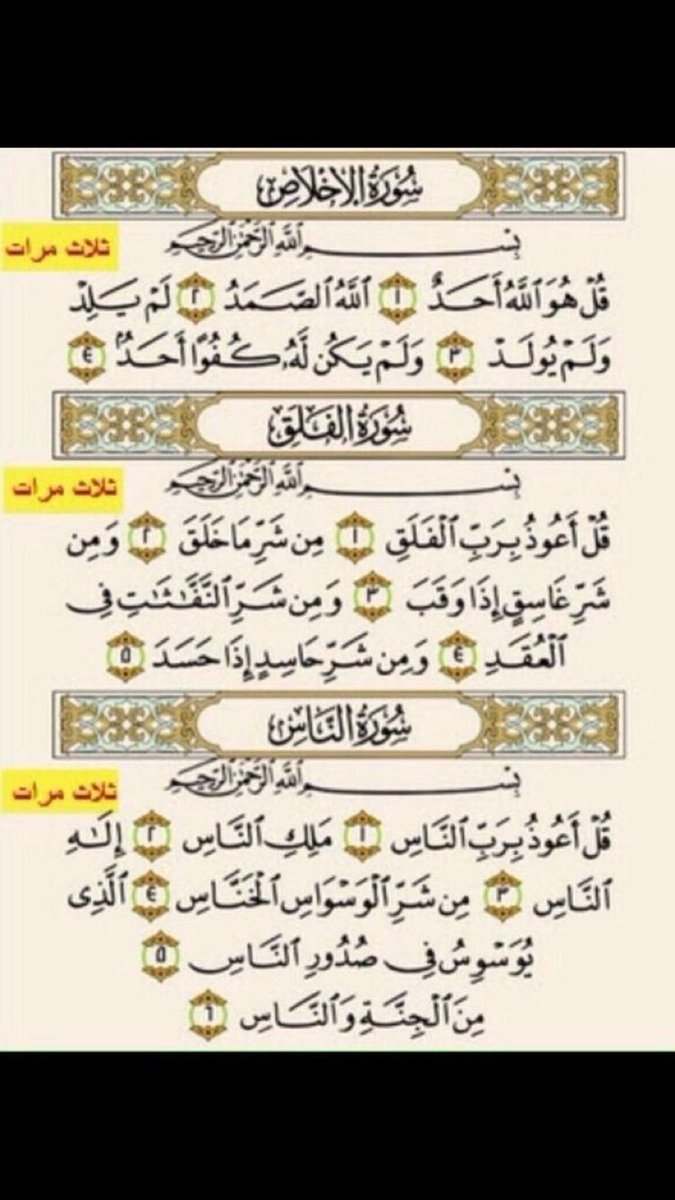 سُورَةُ الإِخْلَاصِ
بِسْمِ اللَّهِ الرَّحْمَٰنِ الرَّحِيمِ
ثلاث مرات
قُلْ هُوَ ٱللَّهُ أَحَدٌ ١ ٱللَّهُ ٱلصَّمَدُ ٢ لَمْ يَلِدْ
وَلَمْ يُولَدْ ٣ وَلَمْ يَكُن لَّهُۥ كُفُوًا أَحَدٌۢ ٤
سُورَةُ الفَلَقِ
بِسْمِ اللَّهِ الرَّحْمَٰنِ الرَّحِيمِ
ثلاث مرات
قُلْ أَعُوذُ بِرَبِّ ٱلْفَلَقِ ١ مِن شَرِّ مَا خَلَقَ ٢ وَمِن
شَرِّ غَاسِقٍ إِذَا وَقَبَ ٣ وَمِن شَرِّ ٱلنَّفَّٰثَٰتِ فِى
ٱلْعُقَدِ ٤ وَمِن شَرِّ حَاسِدٍ إِذَا حَسَدَ ٥
سُورَةُ النَّاسِ
بِسْمِ اللَّهِ الرَّحْمَٰنِ الرَّحِيمِ
ثلاث مرات
قُلْ أَعُوذُ بِرَبِّ ٱلنَّاسِ ١ مَلِكِ ٱلنَّاسِ ٢ إِلَٰهِ
ٱلنَّاسِ ٣ مِن شَرِّ ٱلْوَسْوَاسِ ٱلْخَنَّاسِ ٤ ٱلَّذِى
يُوَسْوِسُ فِى صُدُورِ ٱلنَّاسِ ٥
مِنَ ٱلْجِنَّةِ وَٱلنَّاسِ ٦